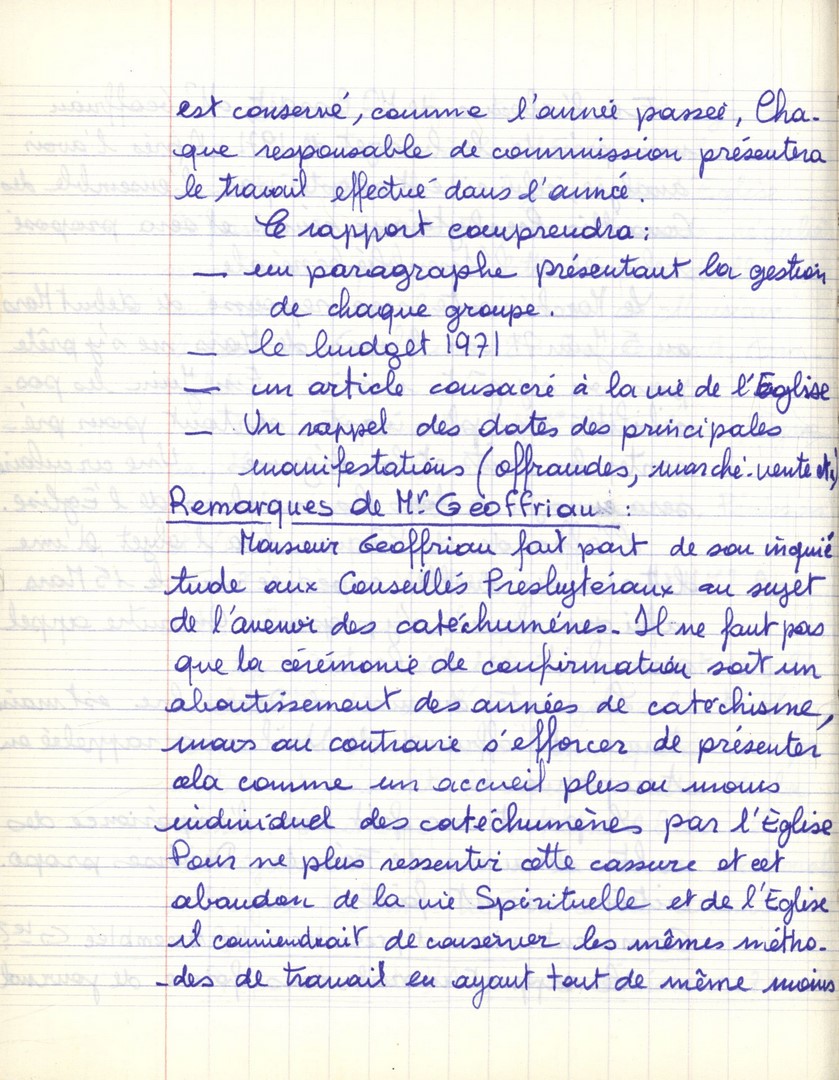 est conservé, comme l'année passée, Cha-
que responsable de commission présentera
le travail effectué dans l'année.
Ce rapport comprendra :
— un paragraphe présentant la gestion
de chaque groupe.
— le budget 1971
— un article consacré à la vie de l'Eglise
— Un rappel des dates des principales
manifestations (offrandes, marché-vente etc)
Remarques de Mr Geoffriau :
Monsieur Geoffriau fait part de son inquié
tude aux Conseillés Presbytéraux au sujet
de l'avenir des catéchumènes. Il ne faut pas
que la cérémonie de confirmation soit un
aboutissement des années de catéchisme,
mais au contraire s'efforcer de présenter
cela comme un accueil plus ou moins
individuel des catéchumènes par l'Eglise
Pour ne plus ressentir cette cassure et cet
abandon de la vie Spirituelle et de l'Eglise
il conviendrait de conserver les mêmes métho-
-des de travail en ayant tout de même moins